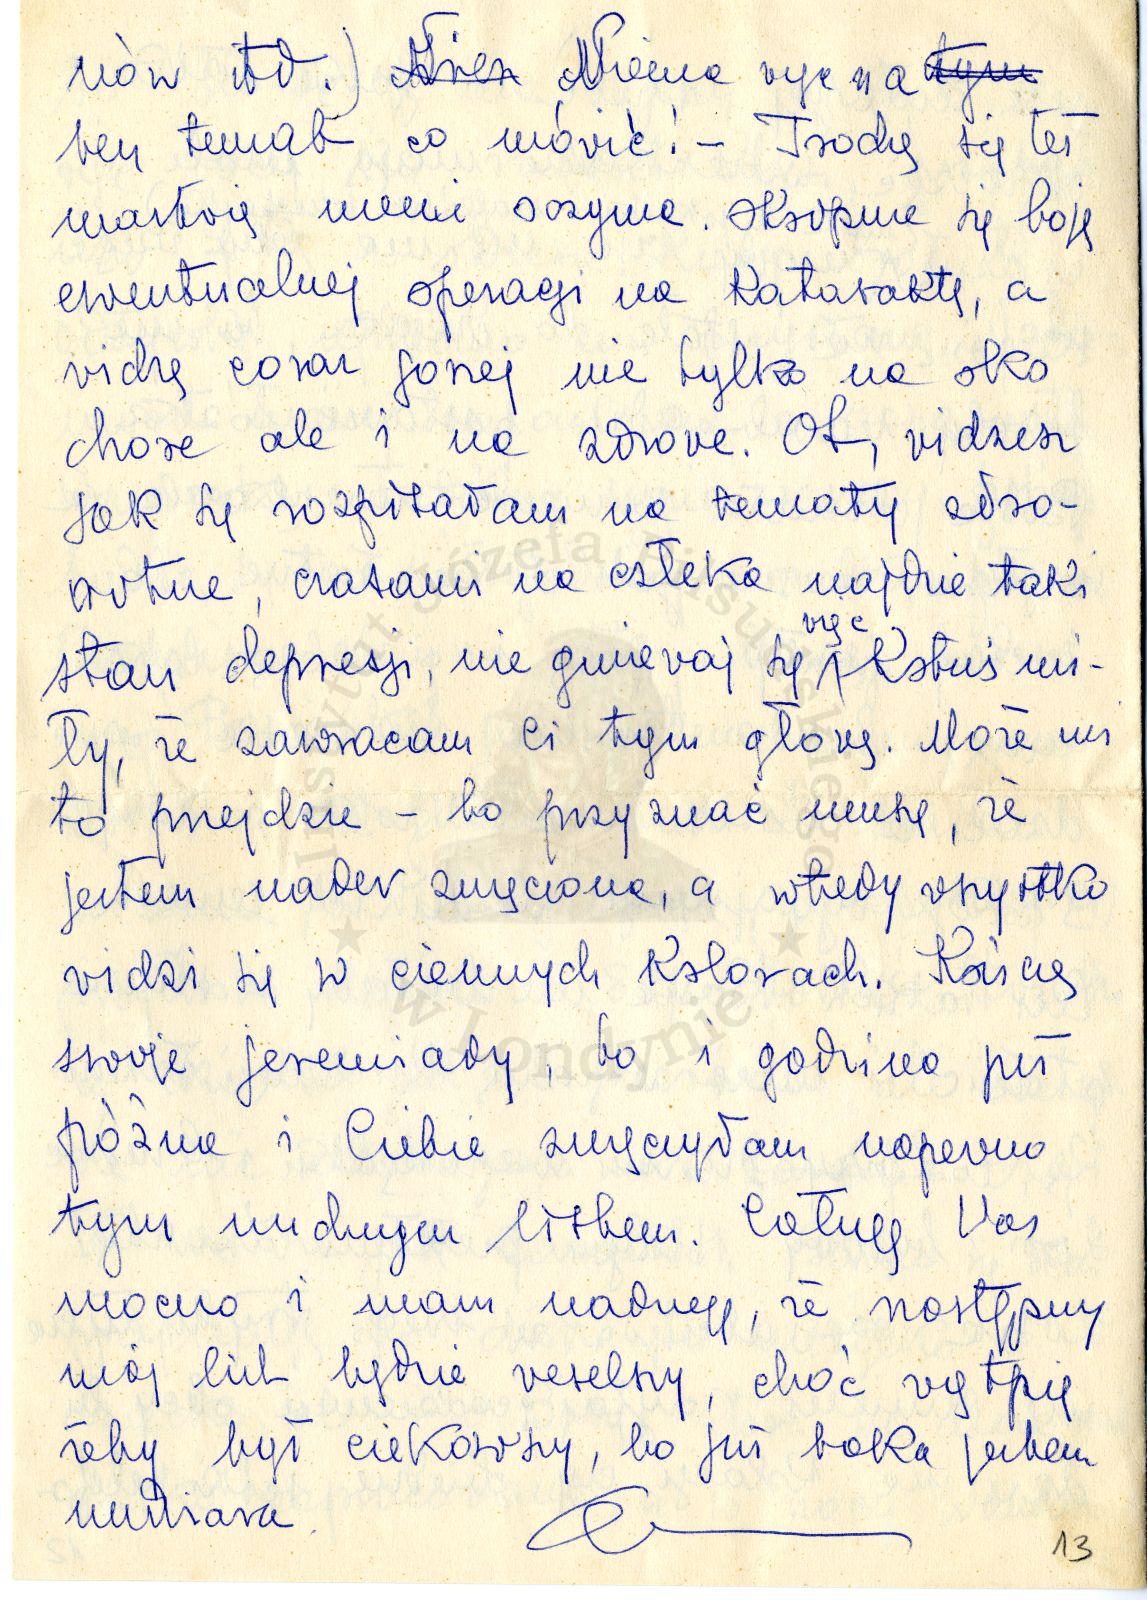 nów itd.) Niema więc na tym
ten temat co mówić! – Trochę się też
martwię memi oczyma. Okropnie się boję
ewentualnej operacji na kataraktę, a
widzę coraz gorzej nie tylko na oko
chore ale i na zdrowe. Ot, widzisz
jak się rozpisałam na tematy zdro-
wotne, czasami na człeka najdzie taki
stan depresji, nie gniewaj się więc Kotuś mi-
ły, że zawracam Ci tym głowę. Może mi
to przejdzie – bo przyznać muszę, że
jestem nader zmęczona, a wtedy wszystko
widzi się w ciemnych kolorach. Kończę
swoje jeremiady, bo i godzina już
późna i Ciebie zmęczyłam napewno
tym nudnym listem. Całuję Was
mocno i mam nadzieję, że następny
mój list będzie weselszy, choć wątpię
żeby był ciekawszy, bo już taka jestem
nudziara.
13
Instytut Józefa Piłsudskiego
★ w Londynie ★